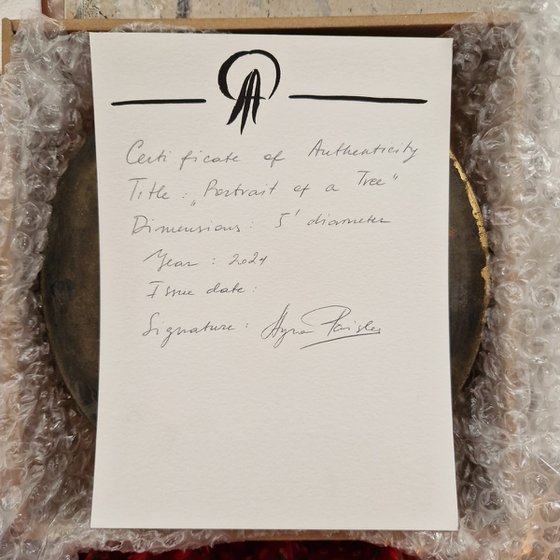 Certificate of Authenticity
Title: „Portrait of a Tree"
Dimensions: 5' diameter
Year: 2021
Issue date:
Signature: